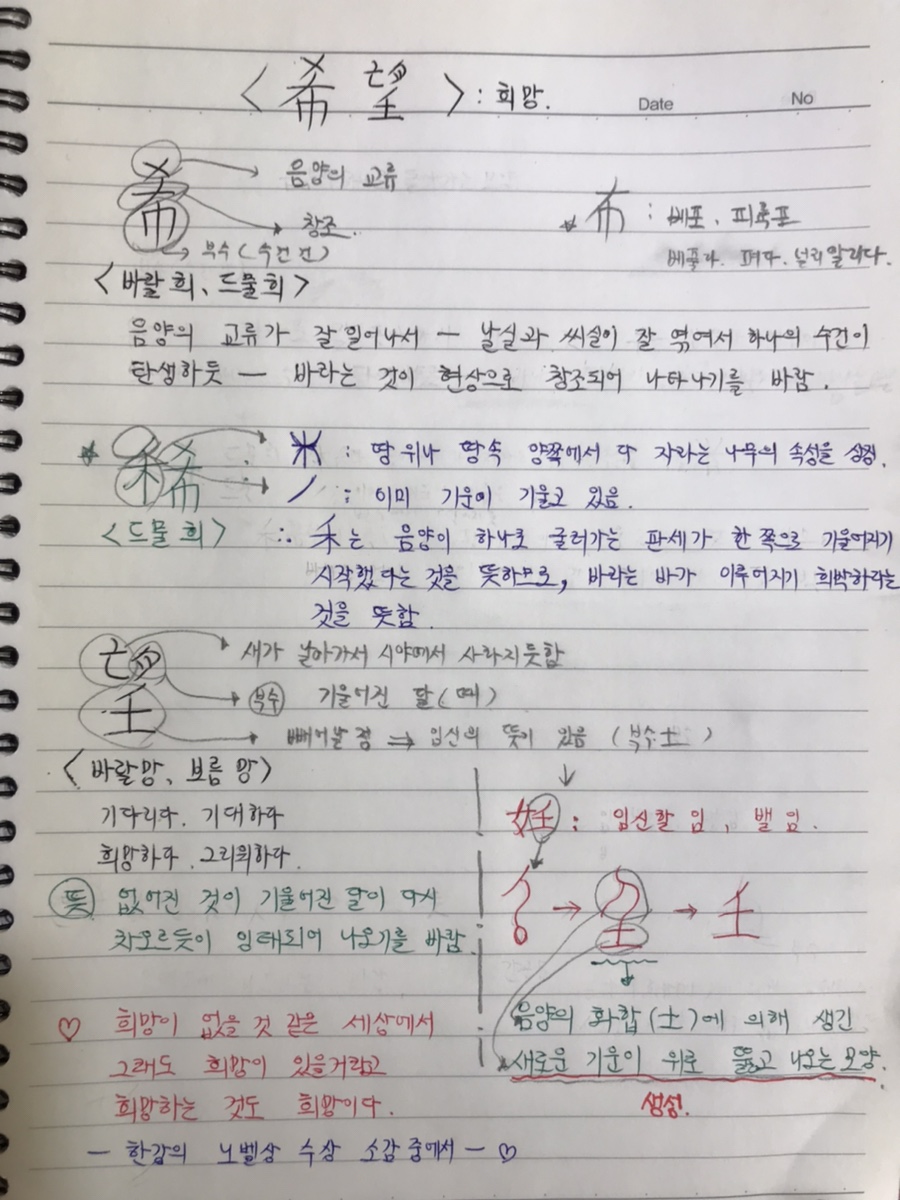 <希望> : 희망.
Date No
希
음양의 교류
창조.
부수(수건 건)
<바랄 희, 드물 희>
* 布 : 베포, 피륙포
베풀다. 펴다. 널리 알리다.
음양의 교류가 잘 일어나서 — 날실과 씨실이 잘 엮여서 하나의 수건이
탄생하듯 — 바라는 것이 현상으로 창조되어 나타나기를 바람.
* 稀 : 木 : 땅 위나 땅속 양쪽에서 다 자라는 나무의 속성을 상징.
丿 : 이미 기운이 기울고 있음.
<드물 희> ∴ 禾는 음양이 하나로 굴러가는 판세가 한 쪽으로 기울어지기
시작했다는 것을 뜻하므로, 바라는 바가 이루어지기 희박하다는
것을 뜻함.
望
새가 날아가서 시야에서 사라지듯함
부수 기울어진 달(때)
빼어날 정 ⇒ 임신의 뜻이 있음 (부수 土)
<바랄망, 보름 망>
기다리다. 기대하다
희망하다. 그리워하다.
뜻 없어진 것이 기울어진 달이 다시
차오르듯이 잉태되어 나오기를 바람.
妊 : 임신할 임, 밸 임.
→ → 壬
음양의 화합(土)에 의해 생긴
새로운 기운이 위로 뚫고 나오는 모양.
생성.
♡ 희망이 없을 것 같은 세상에서
그래도 희망이 있을거라고
희망하는 것도 희망이다.
— 한강의 노벨상 수상 소감 중에서 — ♡